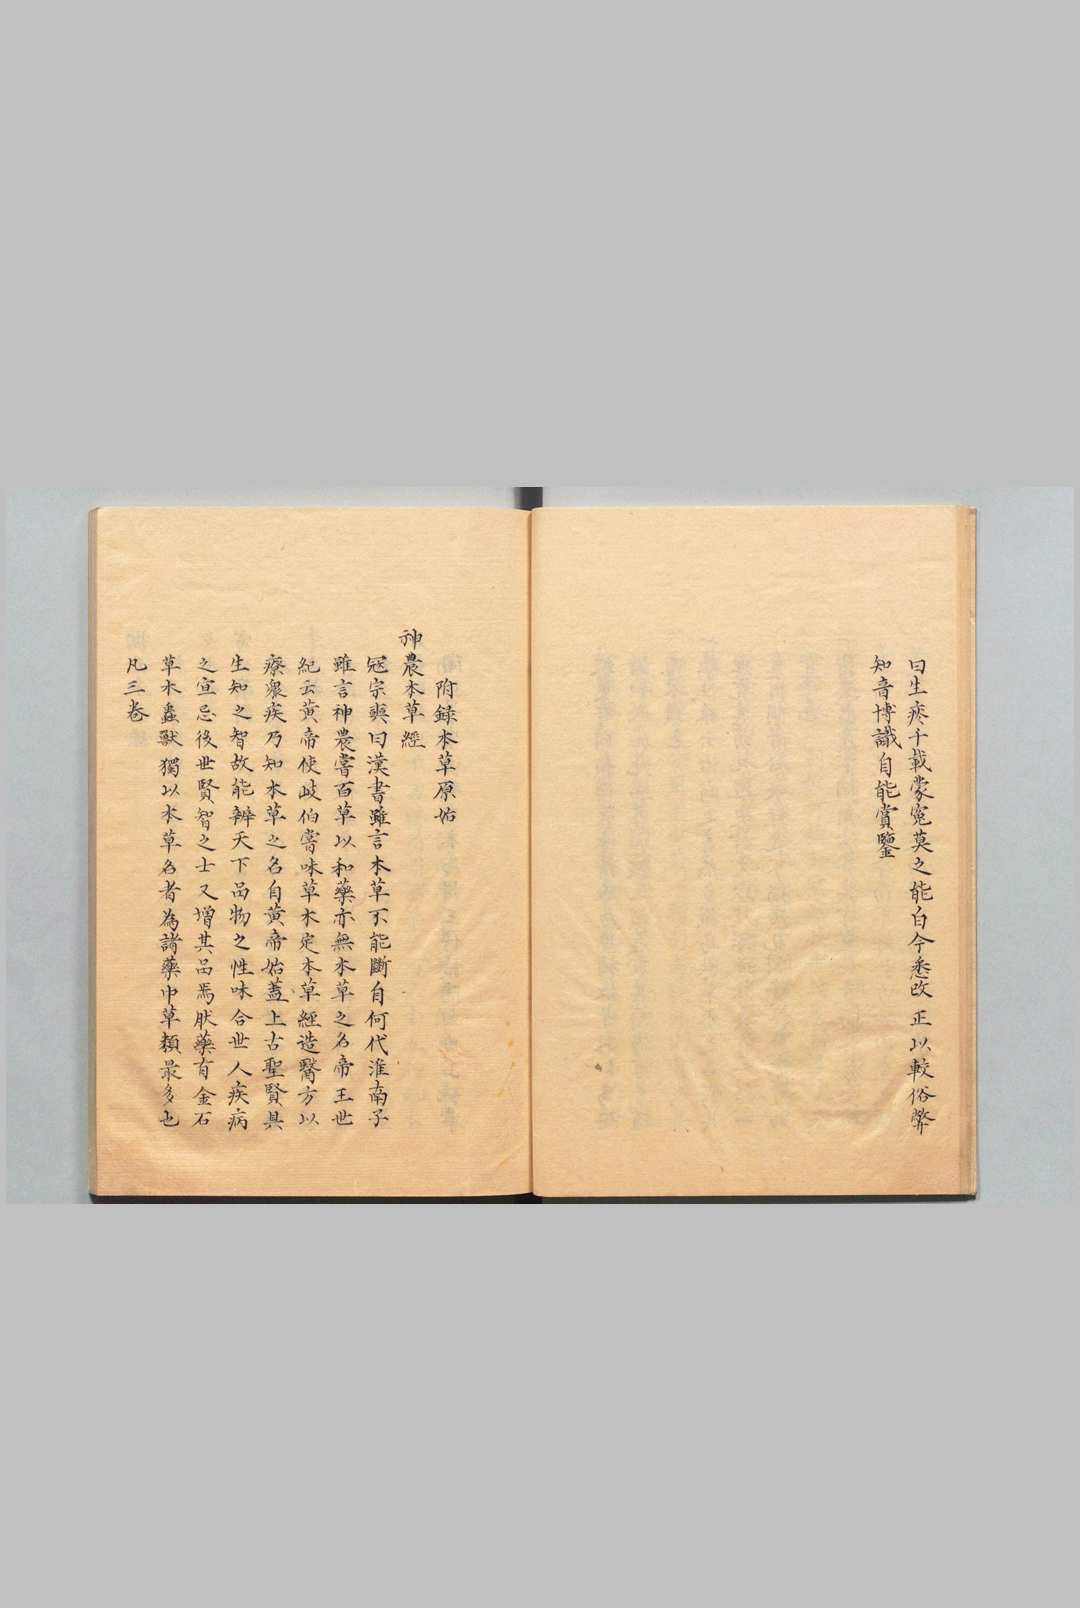 曰生疼千載蒙冤莫之能白今悉改正以較俗弊
知音博識自能賞鑒
附録本草原始
神農本草經
冦宗奭曰漢書雖言本草不能斷自何代淮南子
雖言神農嘗百草以和藥亦無本草之名帝王世
紀云黃帝使岐伯嘗味草木定本草經造醫方以
療衆疾乃知本草之名自黃帝始蓋上古聖賢具
生知之智故能辨天下品物之性味合世人疾病
之宣忌後世賢智之士又增其品焉肰藥有金石
草木蟲獸獨以本草名者為諸藥中草類最多也
凡三卷